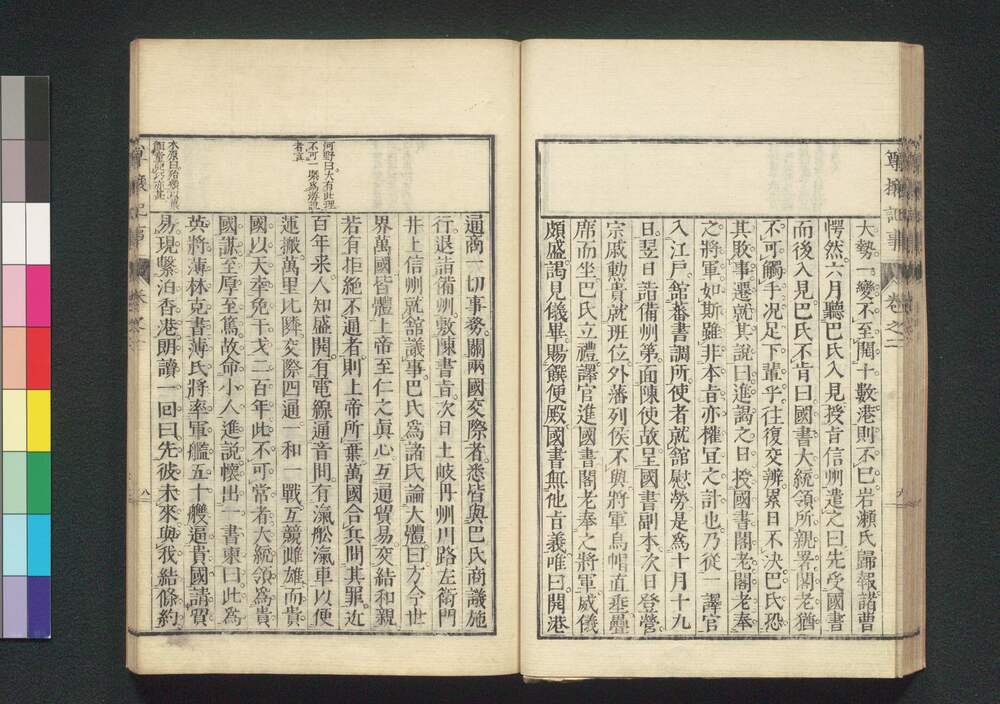 尊攘記事
卷之二
大勢一變不至開十數港則不已岩瀬氏歸報諸曹
愕然。六月聽巴氏入見授旨信州遣之曰先受國書
而後入見巴氏不肯曰國書大統領所親署閣老猶
不可觸手况足下輩乎往復交辨累日不决巴氏恐
其敗事遷就其說曰進謁之日授國書閣老閣老奉
之將軍如斯雖非本旨亦權宜之計也乃從一譯官
入江戶舘蕃書調所使者就舘慰勞是爲十月十九
日翌日詣備州第面陳使故呈國書副本次日登營
宗戚勳貴就班位外藩列侯不與將軍烏帽直垂疊
席而坐巴氏立禮譯官進國書閣老奉之將軍威儀
頗盛謁見儀畢賜饌便殿國書無他旨義唯曰開港
通商一切事務關兩國交際者悉皆與巴氏商議施
行退詣備州敷陳書旨次日土岐丹州川路左衞門
井上信州就舘議事巴氏爲諸氏論大體曰方今世
界萬國皆體上帝至仁之眞心互通貿易交結和親
若有拒絶不通者則上帝所棄萬國合兵問其罪近
百年來人知盛開有電線通音問有滊舩滊車以便
運搬萬里比隣交際四通一和一戰互競雌雄而貴
國以天幸免干戈二百年此不可常者大統領爲貴
國謀至厚至篤故命小人進說懷出一書柬曰此爲
英將薄林克書薄氏將率軍艦五十艘逼貴國請貿
易現繫泊香港朗讀一回曰先彼未來與我結條約
河野曰大有此理
不可一槩爲游說
者言
尊攘記事
卷之二